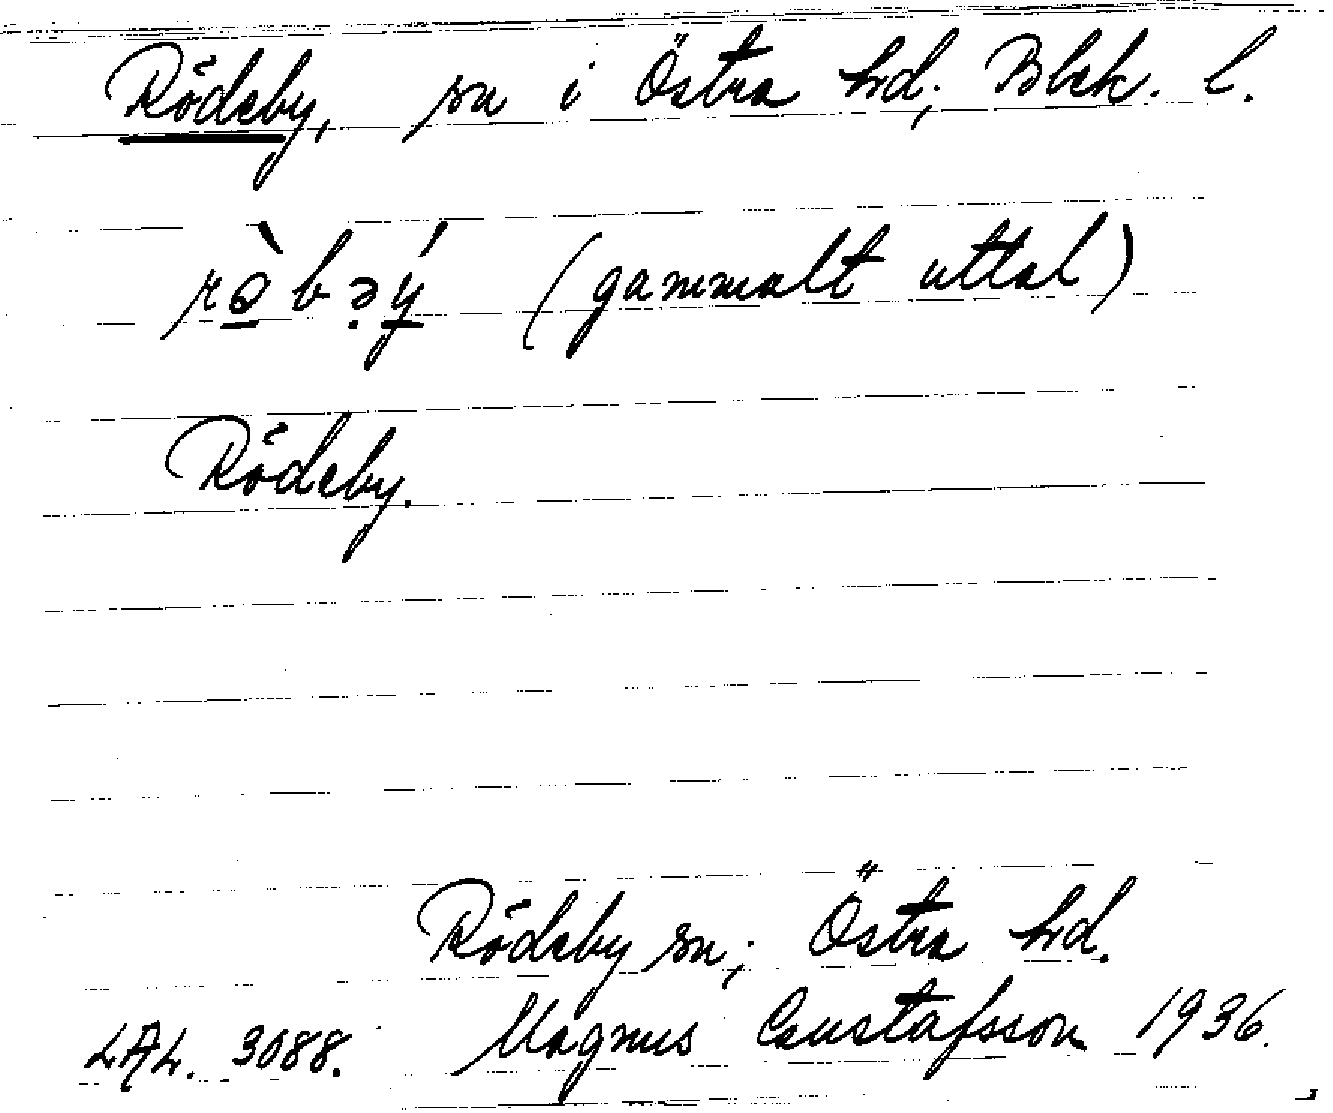 Rödeby, sn i Östra hd, Blek. l.
(gammalt uttal)
Rödeby.
Rödeby sn; Östra hd.
LAL. 3088. Magnus Gustafsson 1936.